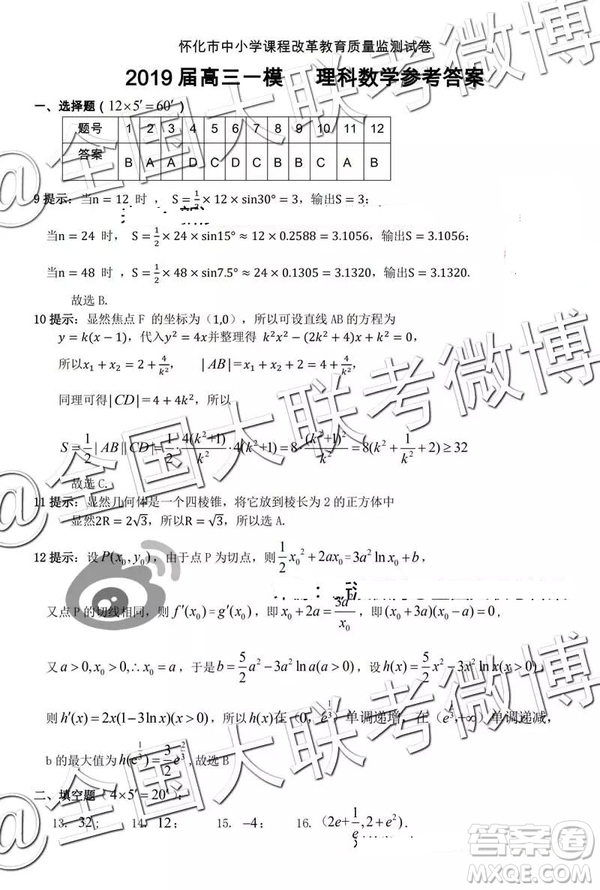 怀化市中小学课程改革教育质量监测试卷
2019 届高三一模 理科数学参考答案
一、选择题（12×5′=60′）
题号 1 2 3 4 5 6 7 8 9 10 11 12
答案 B A A D C D C B B C A B
9 提示: 当n=12 时 ， S=1/2×12×sin30°=3，输出S=3；
当n=24 时， S=1/2×24×sin15°≈12×0.2588=3.1056，输出S=3.1056；
当n=48 时 ，S=1/2×48×sin7.5°≈24×0.1305=3.1320，输出S=3.1320.
故选 B.
10 提示: 显然焦点 F 的坐标为(1,0)，所以可设直线 AB 的方程为
y=k(x−1)，代入y²=4x并整理得 k²x²−(2k²+4)x+k²=0，
所以x₁+x₂=2+4/k²， |AB|=x₁+x₂+2=4+4/k²，
同理可得|CD|=4+4k²，所以
S=1/2|AB||CD|=1/2·4(k²+1)/k²·4(k²+1)=8·(k²+1)²/k²=8(k²+1/k²+2)≥32
故选 C.
11 提示: 显然几何体是一个四棱锥，将它放到棱长为 2 的正方体中
显然2R=2√3，所以R=√3，所以选 A.
12 提示: 设P(x₀,y₀)，由于点 P 为切点，则1/2x₀²+2ax₀=3a²lnx₀+b，
又点 P 的切线相同，则 f′(x₀)=g′(x₀)，即x₀+2a=3a²/x₀，即(x₀+3a)(x₀−a)=0，
又a>0,x₀>0,∴x₀=a，于是b=5/2a²−3a²lna(a>0)，设h(x)=5/2x²−3x²lnx(x>0)，
则h′(x)=2x(1−3lnx)(x>0)，所以h(x)在(0,e^(1/3))单调递增，在(e^(1/3),+∞)单调递减，
b 的最大值为h(e^(1/3))=3/2e^(2/3),故选 B
二、填空题（4×5′=20′）:
13. 32； 14. 12； 15. −4； 16. (2e+1/e,2+e²).
@全国大联考微博
@全国大联考微博
@全国大联考微博
答案圈
MXQE.COM